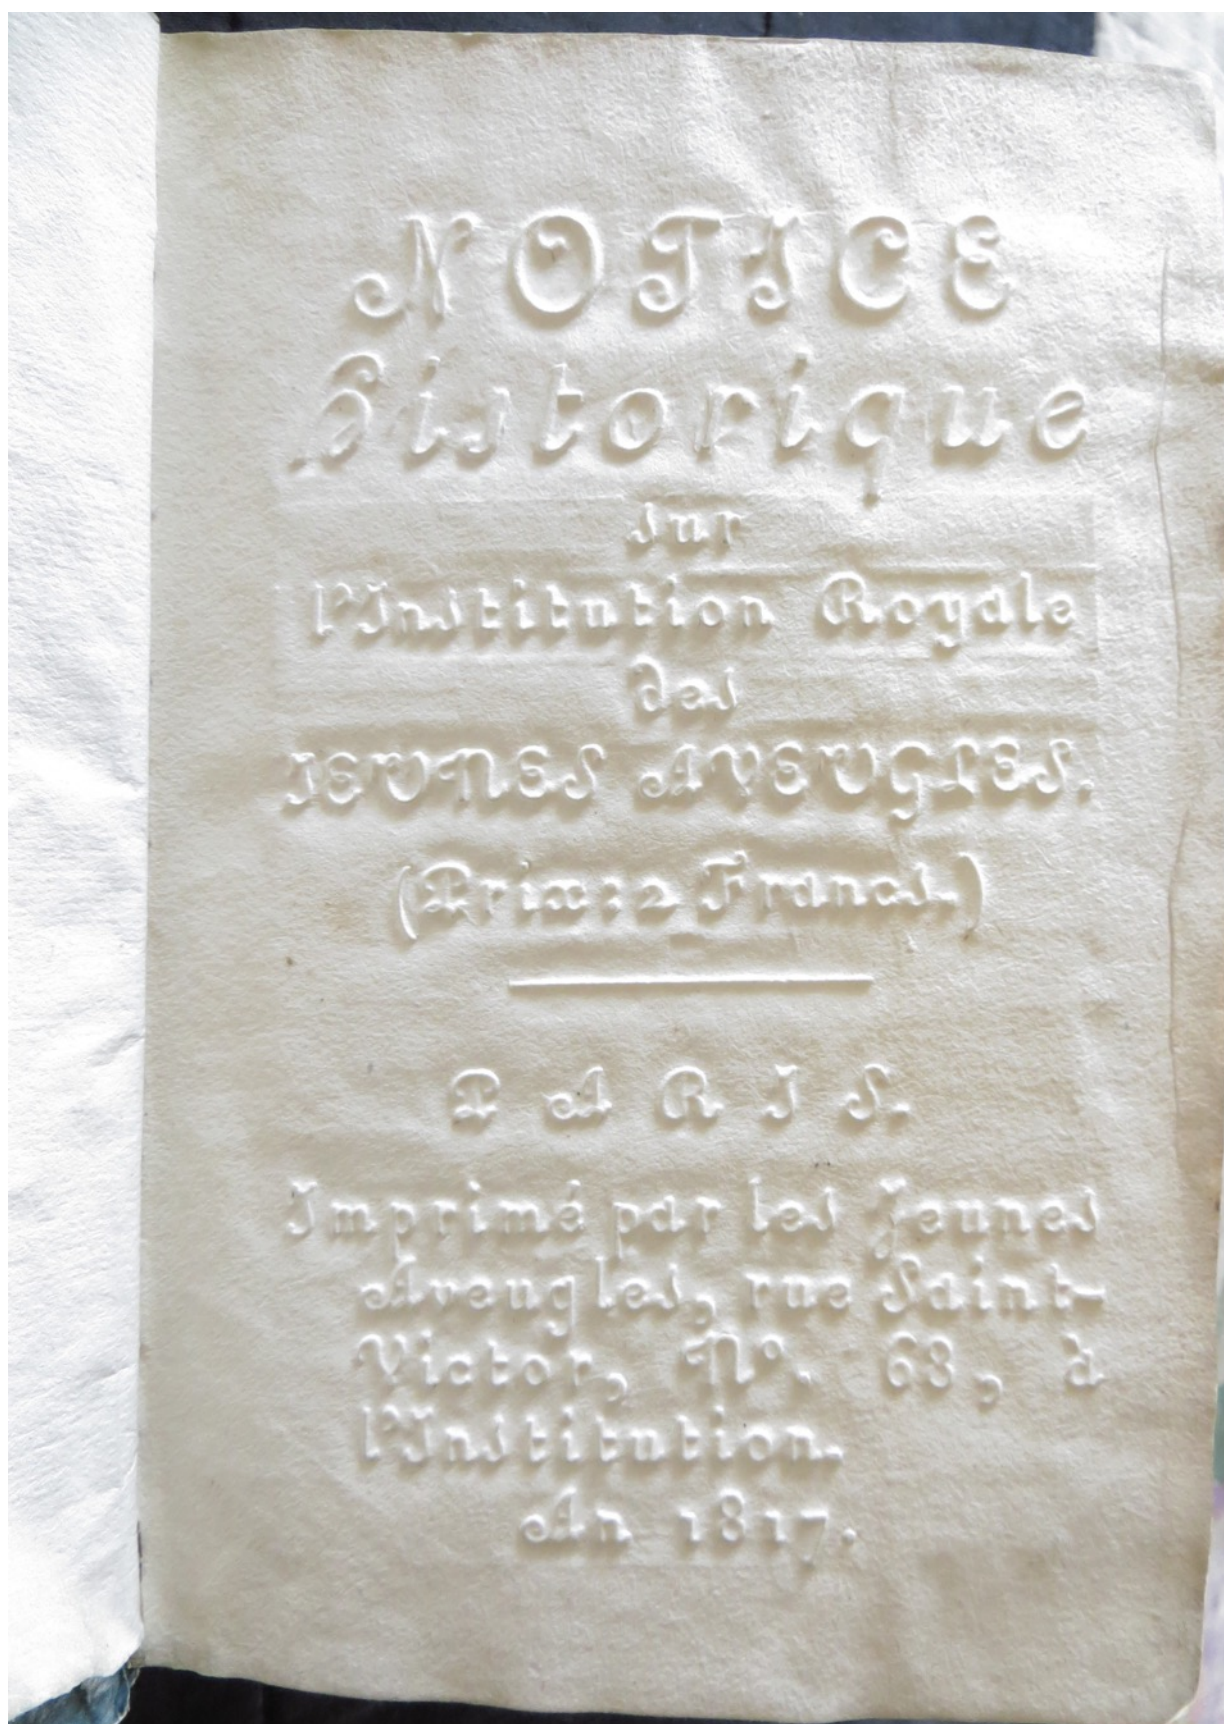 NOTICE
Historique
sur
l'Institution Royale
des
JEUNES AVEUGLES.
(Prix: 2 Francs.)
PARIS.
Imprimé par les Jeunes
Aveugles, rue Saint-
Victor, N°. 68, à
l'Institution.
An 1817.